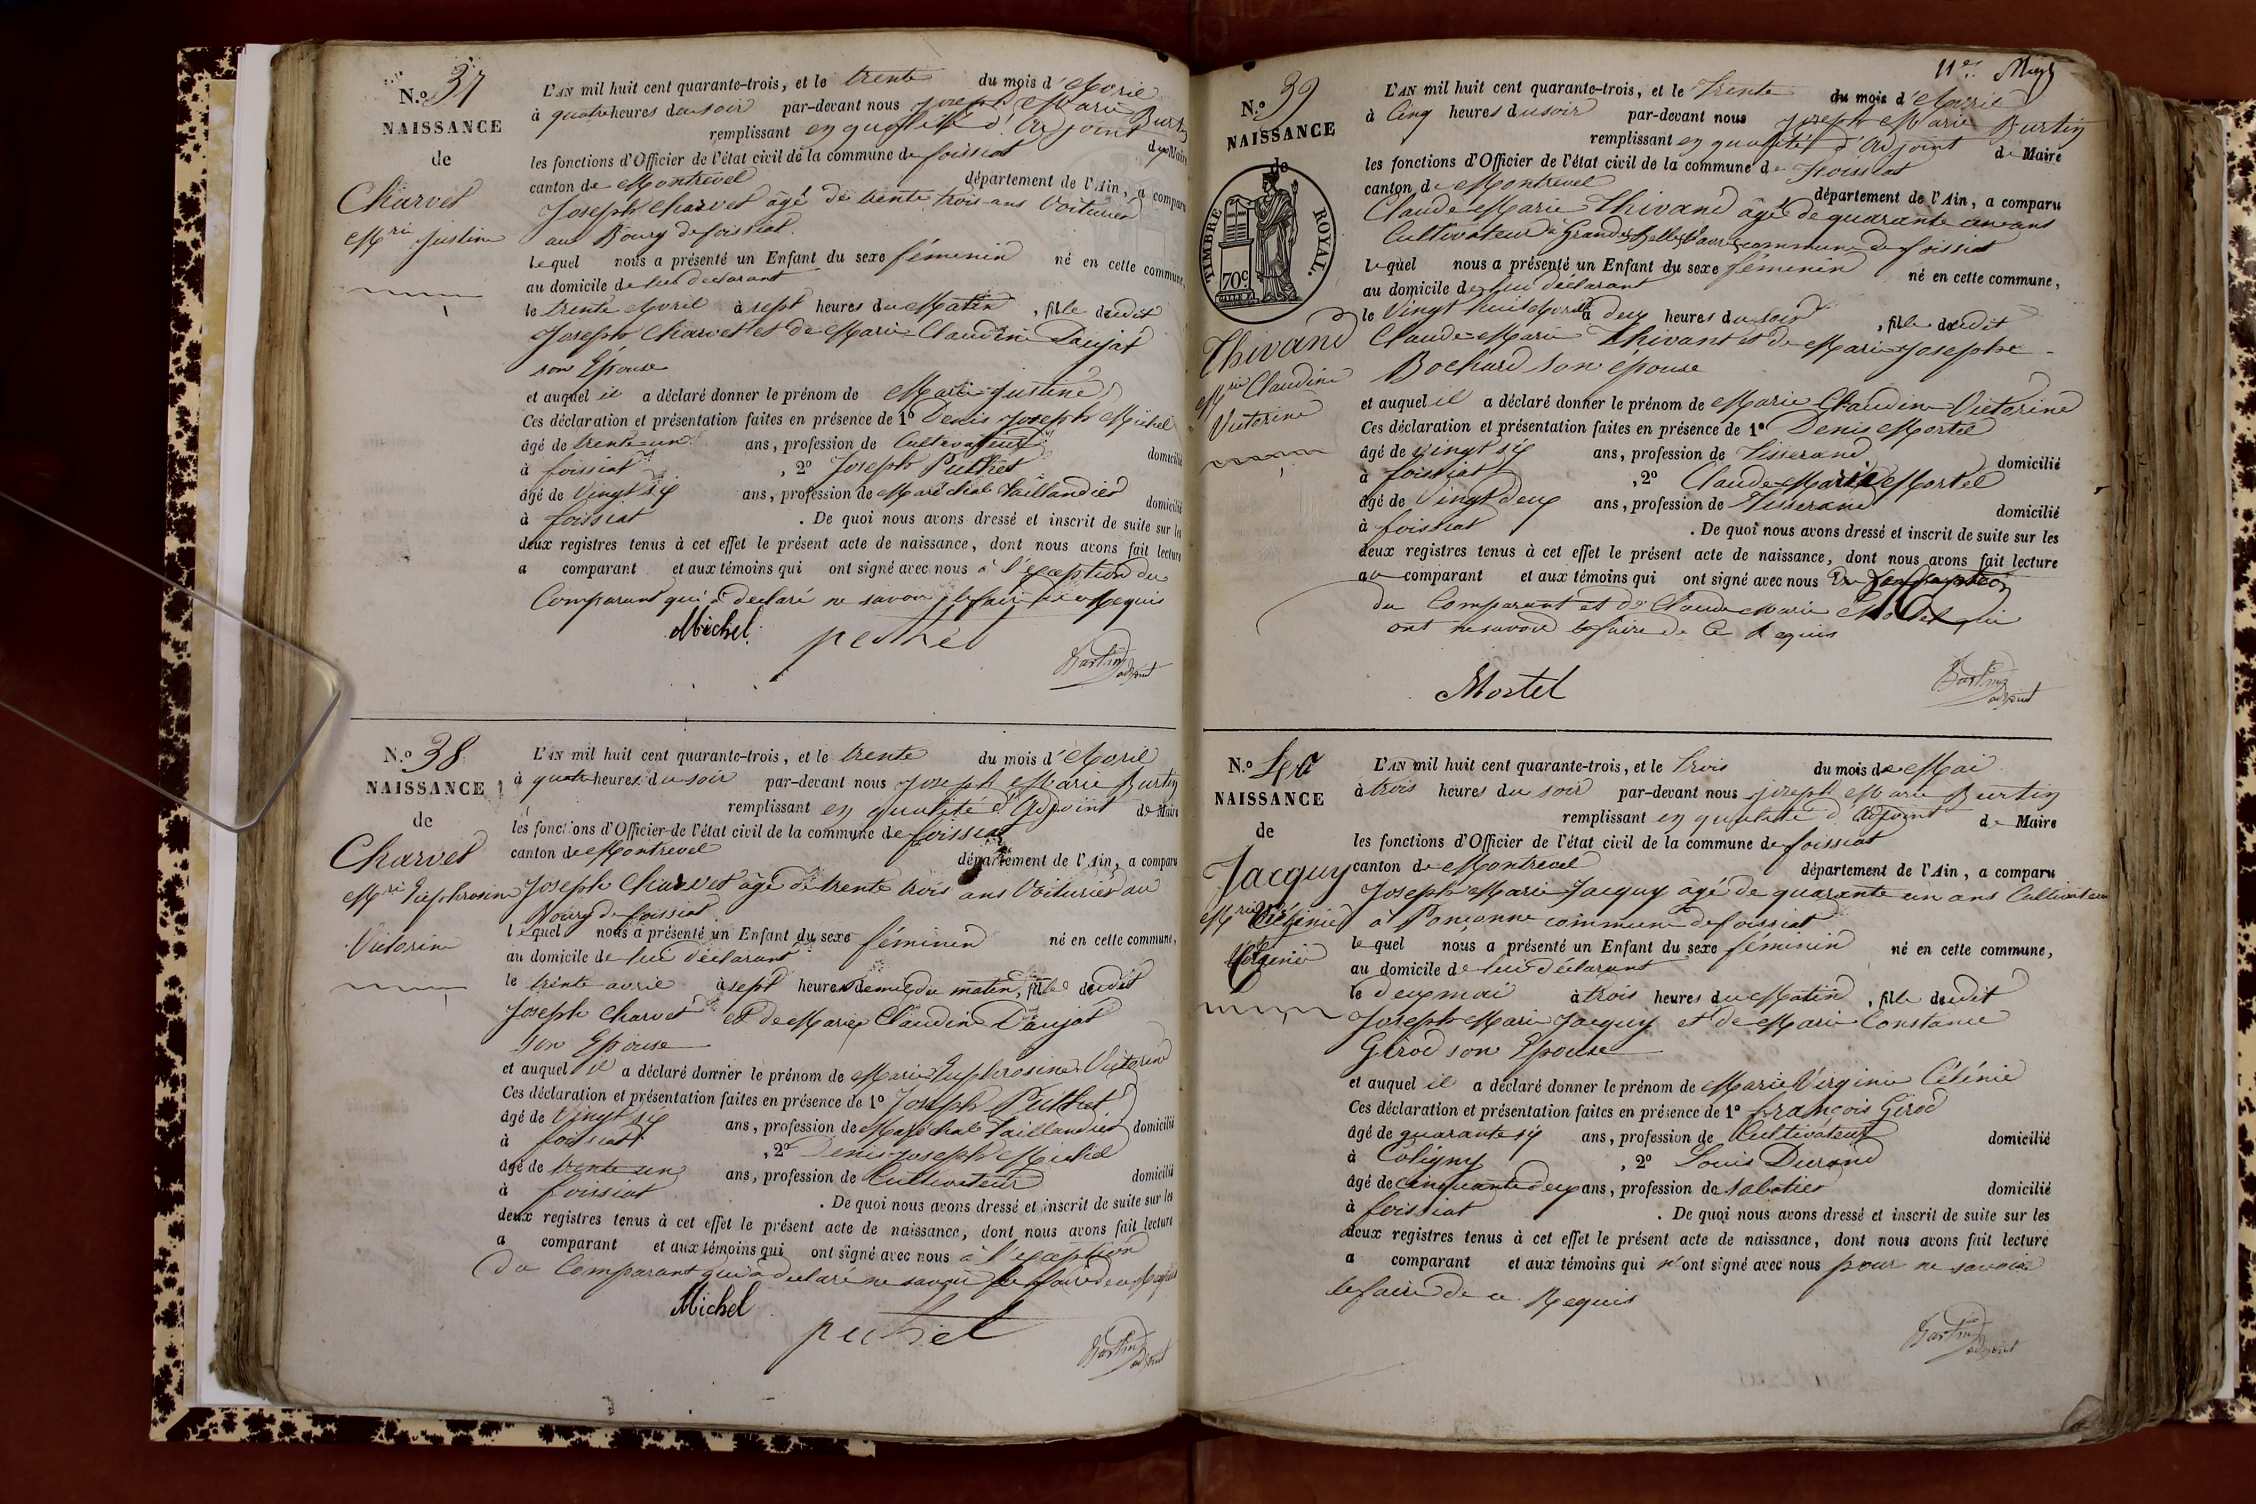 N.o 37
NAISSANCE
de
Charvet
Mrie Justine
L'AN mil huit cent quarante-trois, et le trente du mois d'Avril
à quatre heures du soir par-devant nous Joseph Marie Burtin
remplissant en qualité d'Adjoint de Maire
les fonctions d'Officier de l'état civil de la commune de foissiat
canton de Montrevel département de l'Ain, a comparu
Joseph Charvet âgé de trente trois ans Voiturier
au Bourg de foissiat.
lequel nous a présenté un Enfant du sexe féminin né en cette commune,
au domicile de lui déclarant
le trente Avril à sept heures du Matin, fille dudit
Joseph Charvet et de Marie Claudine Daujat
son Epouse
et auquel il a déclaré donner le prénom de Marie Justine
Ces déclaration et présentation faites en présence de 1o Denis Joseph Michel
âgé de trente un ans, profession de Cultivateur domicilié
à foissiat , 2o Joseph Puthet
âgé de Vingt six ans, profession de Maréchal Taillandier domicilié
à foissiat . De quoi nous avons dressé et inscrit de suite sur les
deux registres tenus à cet effet le présent acte de naissance, dont nous avons fait lecture
a comparant et aux témoins qui ont signé avec nous à l'exception du
Comparant qui a déclaré ne savoir le faire de ce Requis
Michel puthet
Burtin adjoint
N.o 38
NAISSANCE
de
Charvet
Mrie Euphrosine
Victorine
L'AN mil huit cent quarante-trois, et le trente du mois d'Avril
à quatre heures du soir par-devant nous Joseph Marie Burtin
remplissant en qualité d'Adjoint de Maire
les fonctions d'Officier de l'état civil de la commune de foissiat
canton de Montrevel département de l'Ain, a comparu
Joseph Charvet âgé de trente trois ans Voiturier au
Bourg de foissiat
lequel nous a présenté un Enfant du sexe féminin né en cette commune,
au domicile de lui déclarant
le trente avril à sept heures demie du matin, fille dudit
Joseph Charvet et de Marie Claudine Daujat
son Epouse
et auquel il a déclaré donner le prénom de Marie Euphrosine Victorine
Ces déclaration et présentation faites en présence de 1o Joseph Puthet
âgé de Vingt six ans, profession de Maréchal Taillandier domicilié
à foissiat , 2o Denis Joseph Michel
âgé de trente un ans, profession de Cultivateur domicilié
à foissiat . De quoi nous avons dressé et inscrit de suite sur les
deux registres tenus à cet effet le présent acte de naissance, dont nous avons fait lecture
a comparant et aux témoins qui ont signé avec nous à l'exception
du Comparant qui a déclaré ne savoir le faire de ce Requis
Michel puthet
Burtin adjoint
N.o 39
NAISSANCE
de
TIMBRE ROYAL.
70c
Thivand
Mrie Claudine
Victorine
L'AN mil huit cent quarante-trois, et le Trente du mois d'Avril
à Cinq heures du soir par-devant nous Joseph Marie Burtin
remplissant en qualité d'Adjoint de Maire
les fonctions d'Officier de l'état civil de la commune de Foissiat
canton de Montrevel département de l'Ain, a comparu
Claude Marie Thivand âgé de quarante un ans
Cultivateur commune de foissiat
lequel nous a présenté un Enfant du sexe féminin né en cette commune,
au domicile de lui déclarant
le Vingt huit Avril à deux heures du soir, fille dudit
Claude Marie Thivant et de Marie Josephe
Bochard son épouse
et auquel il a déclaré donner le prénom de Marie Claudine Victorine
Ces déclaration et présentation faites en présence de 1o Denis Mortel
âgé de vingt six ans, profession de Tisserand domicilié
à foissiat , 2o Claude Marie Mortel
âgé de Vingt deux ans, profession de Tisserand domicilié
à foissiat . De quoi nous avons dressé et inscrit de suite sur les
deux registres tenus à cet effet le présent acte de naissance, dont nous avons fait lecture
au comparant et aux témoins qui ont signé avec nous
du Comparant et de Claude Marie Mortel qui
ont ne savoir le faire de Ce Requis
Mortel
Burtin adjoint
N.o 40
NAISSANCE
de
Jacquy
Mrie
Virginie
L'AN mil huit cent quarante-trois, et le trois du mois de Mai
à trois heures du soir par-devant nous Joseph Marie Burtin
remplissant en qualité d'Adjoint de Maire
les fonctions d'Officier de l'état civil de la commune de foissiat
canton de Montrevel département de l'Ain, a comparu
Joseph Marie Jacquy âgé de quarante un ans Cultivateur
à Ponçonne commune de foissiat
lequel nous a présenté un Enfant du sexe féminin né en cette commune,
au domicile de lui déclarant
le deux mai à trois heures du Matin, fille dudit
Joseph Marie Jacquy et de Marie Constance
Girod son Epouse
et auquel il a déclaré donner le prénom de Marie Virginie Célénie
Ces déclaration et présentation faites en présence de 1o françois Girod
âgé de quarante six ans, profession de Cultivateur domicilié
à Coligny , 2o Louis Durand
âgé de Cinquante deux ans, profession de sabotier domicilié
à foissiat . De quoi nous avons dressé et inscrit de suite sur les
deux registres tenus à cet effet le présent acte de naissance, dont nous avons fait lecture
a comparant et aux témoins qui n'ont signé avec nous pour ne savoir
le faire de ce Requis
Burtin adjoint